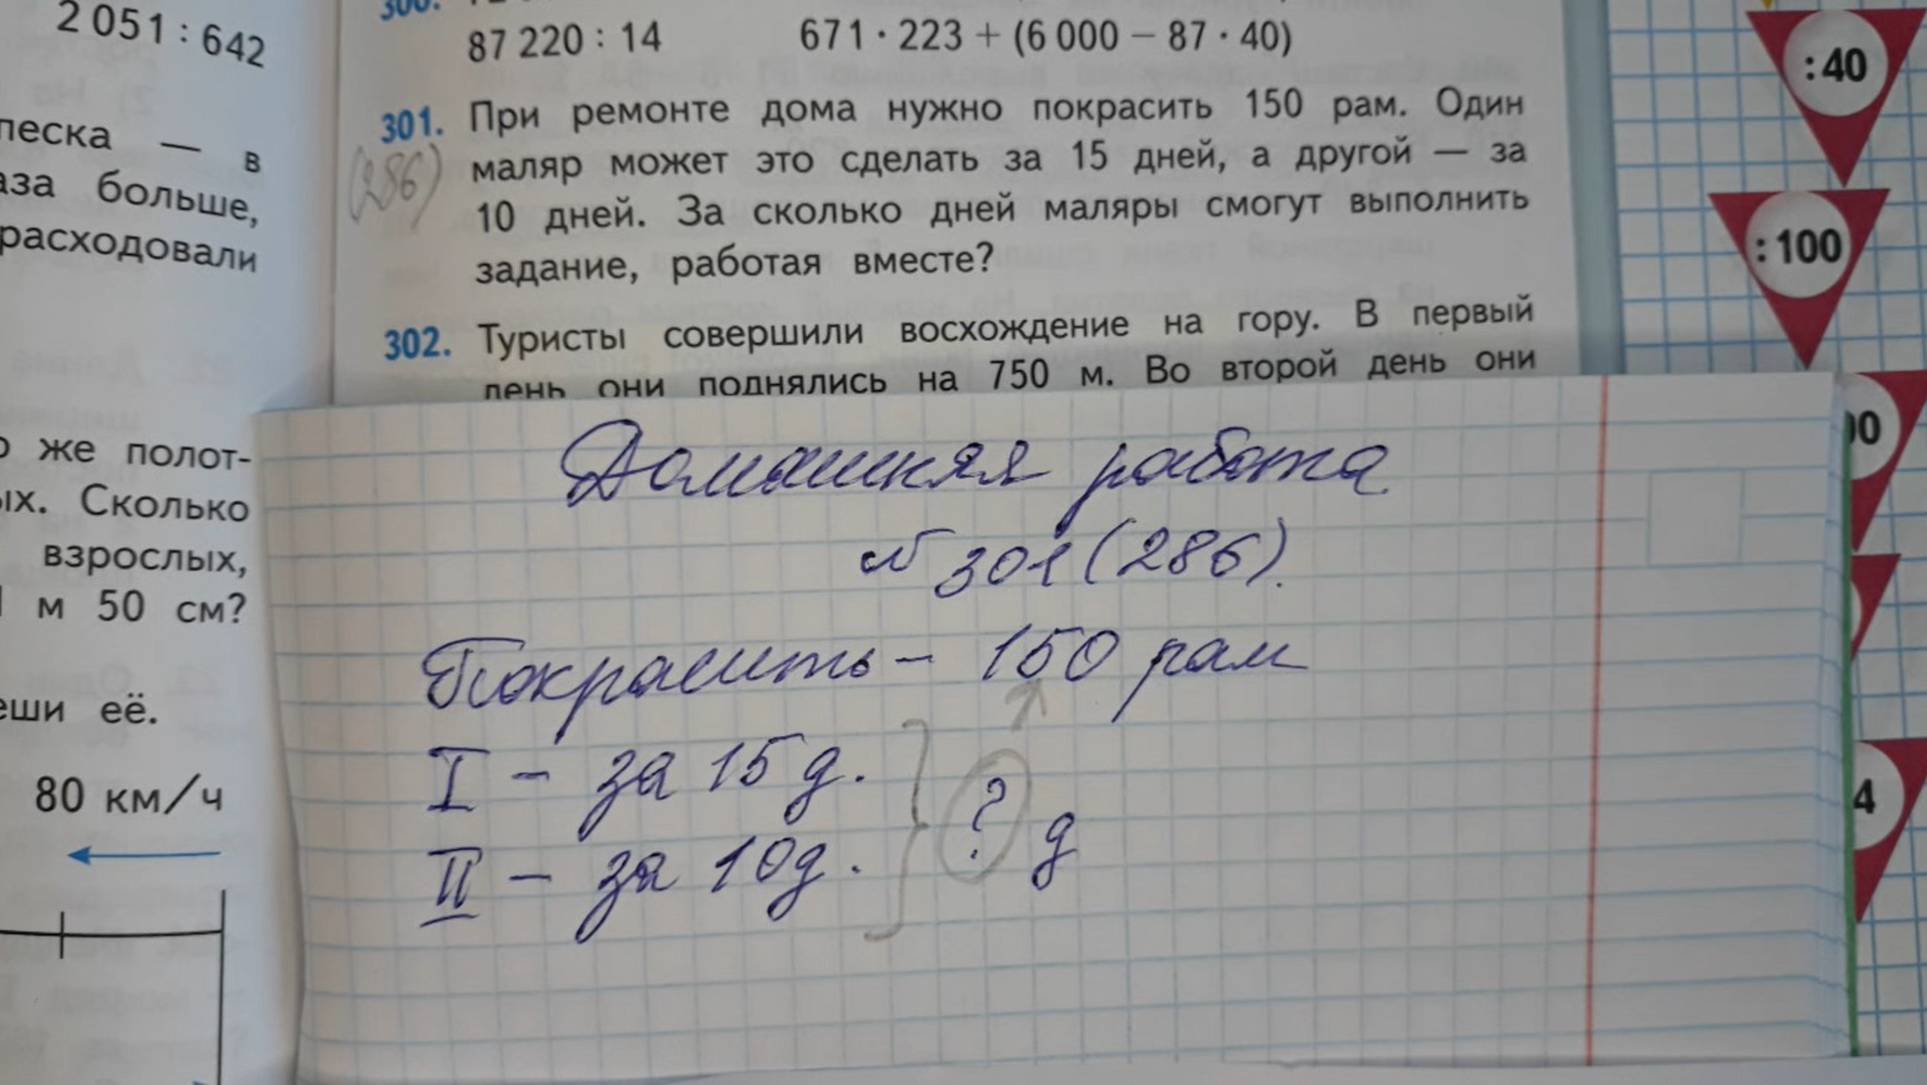 2 051 : 642
песка — в
аза больше,
расходовали
о же полот-
ых. Сколько
взрослых,
м 50 см?
еши её.
80 км/ч
300.
87 220 : 14 671 · 223 + (6 000 − 87 · 40)
301. При ремонте дома нужно покрасить 150 рам. Один
(286) маляр может это сделать за 15 дней, а другой — за
10 дней. За сколько дней маляры смогут выполнить
задание, работая вместе?
302. Туристы совершили восхождение на гору. В первый
день они поднялись на 750 м. Во второй день они
Домашняя работа
№ 301 (286).
Покрасить – 150 рам
I – за 15 д.
II – за 10 д. } ? д
: 40
: 100
00
4